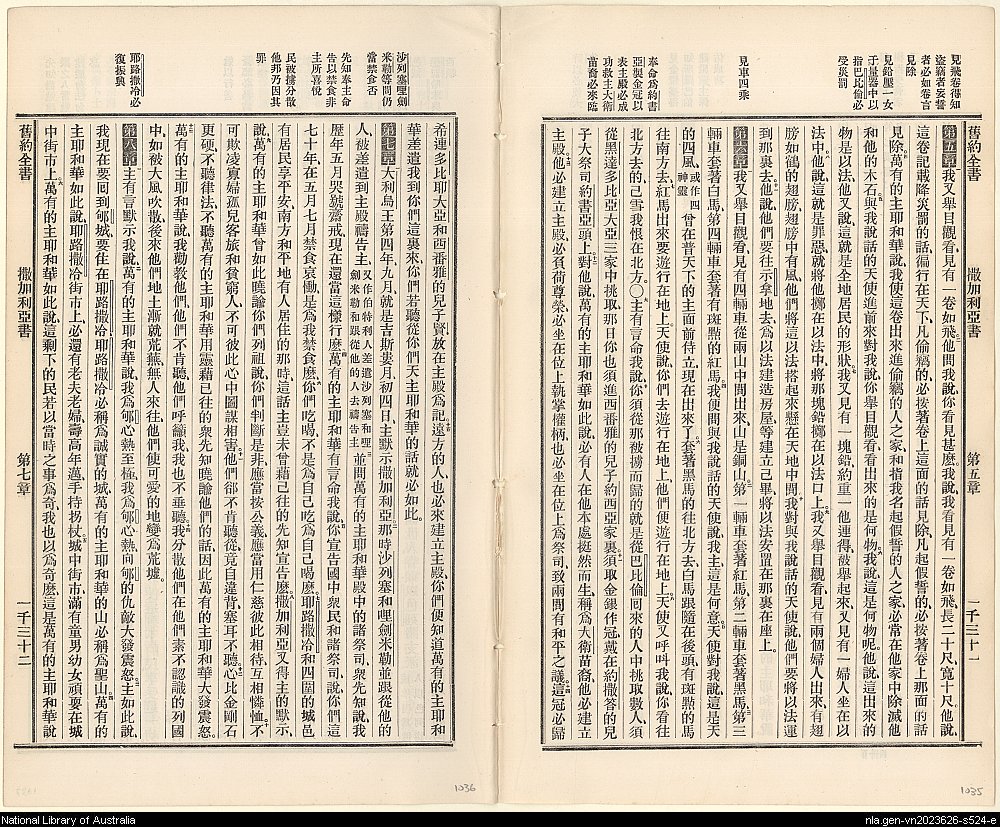 見飛卷律知
盜竊者妄誓
者必如卷言
見除
見鉛壓一女
于量器中以
指巴比倫必
受災罰
見車四乘
奉命爲約書
亞製金冠以
表主殿必成
功救主大衛
苗裔必來臨
舊約全書 撒加利亞書 第五章 一千三十一
第五章 我又舉目觀看、見有一卷如飛、他問我說、你看見甚麼、我說、我看見有一卷如飛、長二十尺、寬十尺。他說、
這卷記載降災罰的話、徧行在天下、凡偷竊的、必按著卷上這面的話見除、凡起假誓的、必按著卷上那面的話
見除。萬有的主耶和華說、我使這卷出來、進偷竊的人之家、和指我名起假誓的人之家、必常在他家中、除滅他
和他的木石。與我說話的天使進前來、對我說、你舉目觀看、看出來的是何物。我說、這是何物呢、他說、這出來的
物是以法、他又說、這就是全地居民的形狀。我又見有一塊鉛、約重一他連得、被舉起來、又見有一婦人坐在以
法中。他說、這就是罪惡、就將他擲在以法中、將那塊鉛擲在以法口上。我又舉目觀看、見有兩個婦人出來、有翅
膀如鶴的翅膀、翅膀中有風、他們將這以法搭起來、懸在天地中間。我對與我說話的天使說、他們要將以法運
到那裏去。他說、他們要往示拿地去、爲以法建造房屋、等建立已畢、將以法安置在那裏在座上。
第六章 我又舉目觀看、見有四輛車從兩山中間出來、山是銅山。第一輛車套著紅馬、第二輛車套著黑馬、第三
輛車套著白馬、第四輛車套著有斑點的紅馬。我便問與我說話的天使說、我主、這是何意。天使對我說、這是天
的四風、或作四神靈 曾在普天下的主面前侍立、現在出來了。套著黑馬的往北方去、白馬跟隨在後頭、有斑點的馬
往南方去。紅馬出來、要遊行在地上、天使說、你們去遊行在地上、他們便遊行在地上。天使又呼叫我說、你看往
北方去的、已雪我恨在北方。〇主有言命我說、你須從那被擄而歸的、就是從巴比倫囘來的人中挑取數人、須
從黑達多比亞大亞三家中挑取、那日你也須進西番雅的兒子約西亞家裏。須取金銀作冠、戴在約撒答的兒
子大祭司約書亞頭上。對他說、萬有的主耶和華如此說、必有人在他本處挺然而生、稱爲大衛苗裔、他必建立
主殿。他必建立主殿、必負荷尊榮、必坐在位上執掌權柄、也必坐在位上爲祭司、致兩間有和平之議。這冠必歸
沙列塞哩劍
米勒等問仍
當禁食否
先知奉主命
吿以禁食非
主所喜悅
民被擄分散
他邦乃因其
罪
耶路撒冷必
復振興
希連多比雅大亞和西番雅的兒子賢、放在主殿爲記。遠方的人也必來建立主殿、你們便知道萬有的主耶和
華差遣我到你們這裏來、你們若聽從你們天主耶和華的話、就必如此。
第七章 大利烏王第四年、九月、就是吉斯婁月初四日、主默示撒加利亞。那時沙列塞和哩劍米勒並跟從他的
人、被差遣到主殿禱吿主、又作伯特利人差遣沙列塞和哩劍米勒和跟從他的人去禱吿主 並問萬有的主耶和華殿中的諸祭司、衆先知說、我
歷年五月哭號齋戒、現在還當這樣行麼。萬有的主耶和華有言命我說、你宣吿國中衆民和諸祭司說、你們這
七十年、在五月七月禁食哀慟、是爲我禁食麼。你們吃喝、不是爲自己吃、爲自己喝麼。耶路撒冷和四圍的城邑
有居民享平安、南方和平地有人居住的那時、這話主豈未曾藉已往的先知宣吿麼。撒加利亞又得主的默示、
說、萬有的主耶和華曾如此曉諭你們列祖說、你們判斷是非、應當按公義、應當用仁慈彼此相待、互相憐恤。不
可欺凌寡婦孤兒客旅和貧窮人、不可彼此心中圖謀相害。他們卻不肯聽從、竟自違背、塞耳不聽。心比金剛石
更硬、不聽律法、不聽萬有的主耶和華用靈藉已往的衆先知曉諭他們的話、因此萬有的主耶和華大發震怒。
萬有的主耶和華說、我勸教他們、他們不肯聽、他們呼籲我、我也不垂聽。我分散他們在他們素不認識的列國
中、如被大風吹散、後來他們地土漸就荒蕪、無人來往、他們使可愛的地變爲荒墟。
第八章 主有言默示我說、萬有的主耶和華說、我爲郇心熱至極、我爲郇心熱、向郇的仇敵大發震怒。主如此說、
我現在要囘到郇城、要住在耶路撒冷、耶路撒冷必稱爲誠實的城、萬有的主耶和華的山必稱爲聖山。萬有的
主耶和華如此說、耶路撒冷街市上必還有老夫老婦、壽高年邁、手持柺杖。城中街市滿有童男幼女、頑耍在城
中街市上。萬有的主耶和華如此說、這剩下的民若以當時之事爲奇、我也以爲奇麼、這是萬有的主耶和華說
舊約全書 撒加利亞書 第七章 一千三十二
1036
1035
National Library of Australia
nla.gen-vn2023626-s524-e